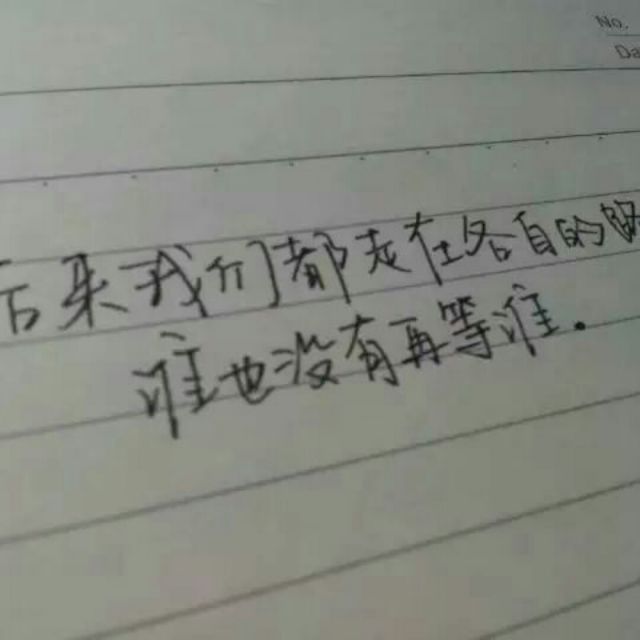 No.
Da
后来我们都走在各自的
谁也没有再等谁.